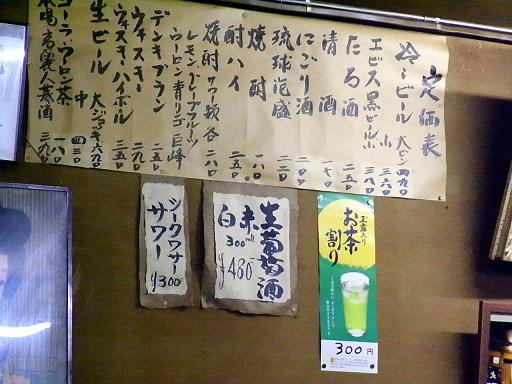 定価表
冷ービール 大ビン 四九〇
小 三六〇
エビス黒ビール小 三八〇
たる酒 三五〇
清酒 一七〇
にごり酒 二二〇
琉球泡盛 二二〇
焼酎 一八〇
酎ハイ 二五〇
焼酎サワー類各 二八〇
レモン グレープフルーツ
ウーロン 青りんご 巨峰
デンキブラン 二五〇
ウイスキー 二九〇
ウイスキーハイボール 三五〇
生ビール 大ジョッキ 六九〇
中 四三〇
コーラ、ウーロン茶 一八〇
高麗人蔘酒 三九〇
シークワサー
サワー
¥300
生葡萄酒
赤
白
300ml
¥480
玉露入り
お茶割り
300円